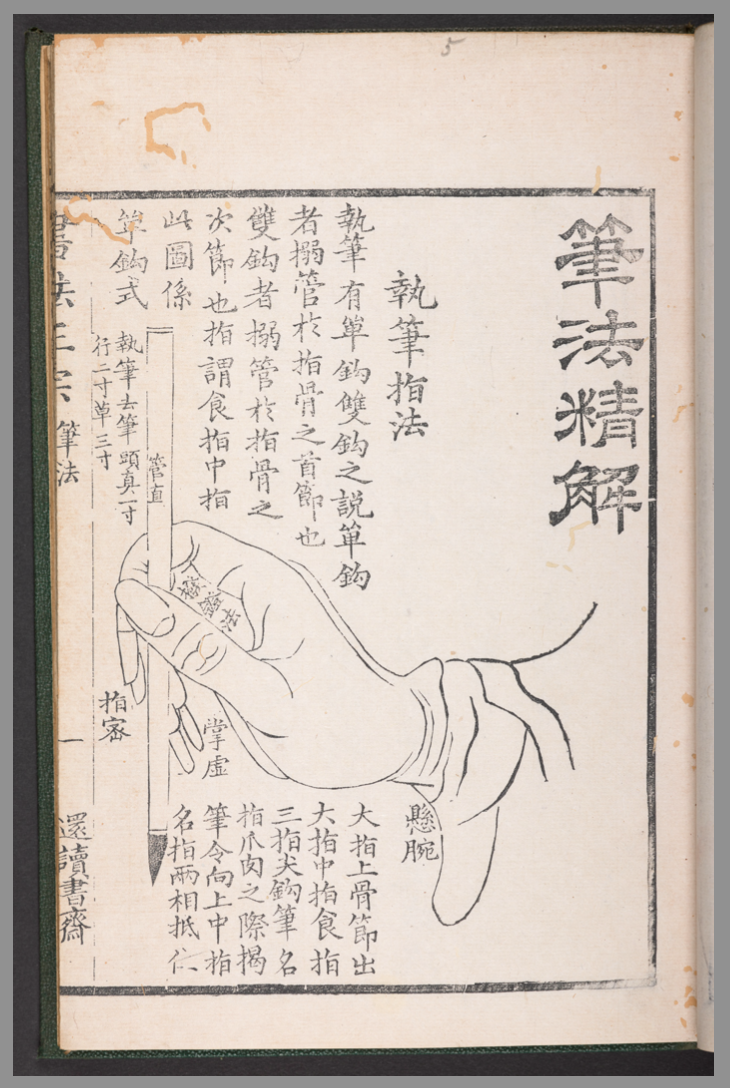 5
筆法精解
執筆指法
執筆有單鈎雙鈎之説單鈎
者搦管於指骨之首節也
雙鈎者搦管於指骨之
次節也指謂食指中指
此圖係
單鈎式
執筆去筆頭真一寸
行二寸草三寸
管直
撥鐙法
指密
掌虛
懸腕
大指上骨節出
大指中指食指
三指尖鈎筆名
指爪肉之際揭
筆令向上中指
名指兩相抵
書法正宗 筆法 一 還讀書齋